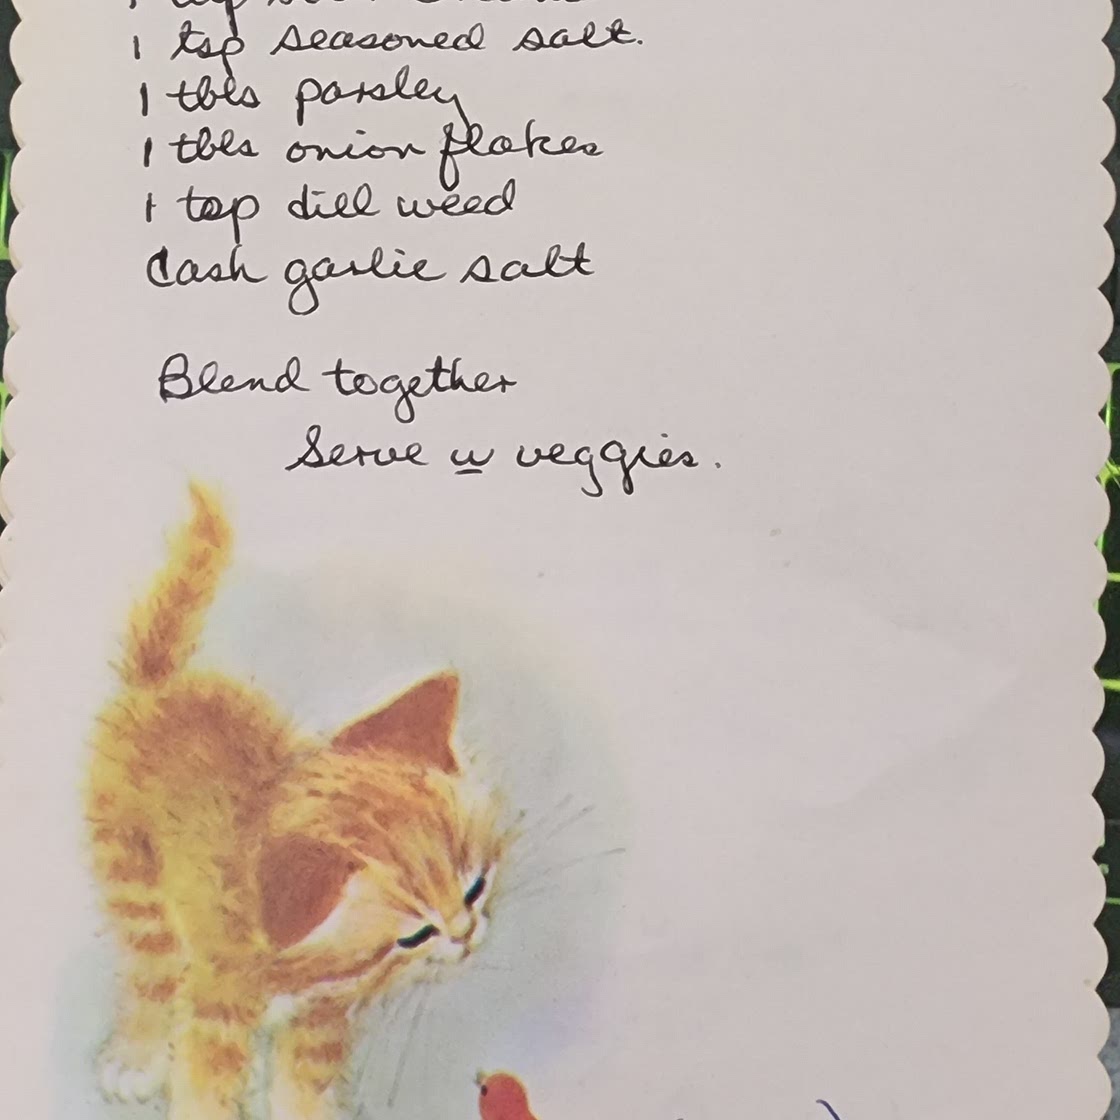 1 tsp seasoned salt.
1 tbls parsley
1 tbls onion flakes
1 tsp dill weed
dash garlic salt
Blend together
Serve w veggies.